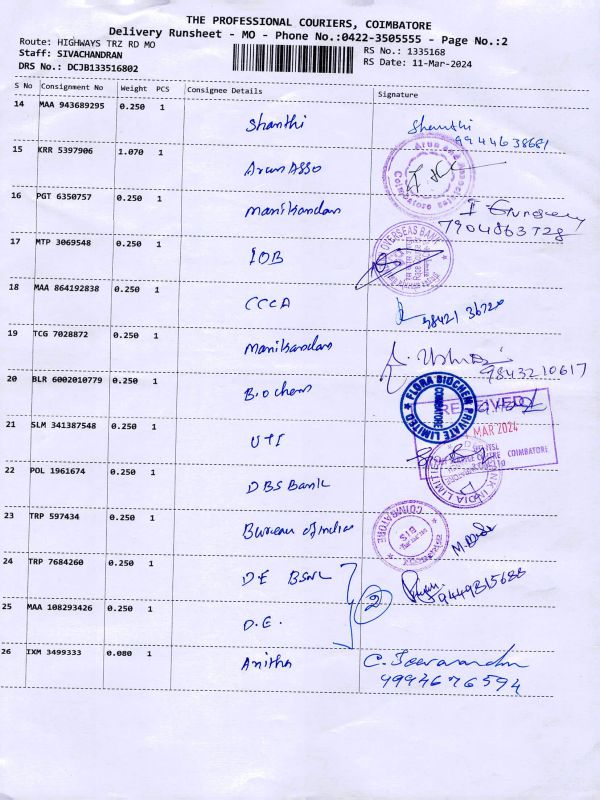 THE PROFESSIONAL COURIERS, COIMBATORE
Delivery Runsheet - MO - Phone No.:0422-3505555 - Page No.:2
Route: HIGHWAYS TRZ RD MO
Staff: SIVACHANDRAN
DRS No.: DCJB133516802
RS No.: 1335168
RS Date: 11-Mar-2024
S No Consignment No Weight PCS Consignee Details Signature
14 MAA 943689295 0.250 1 Shanthi Shanthi
9944638681
15 KRR 5397906 1.070 1 Arun ASSO
16 PGT 6350757 0.250 1 Manikandan
7904863728
17 MTP 3069548 0.250 1 IOB OVERSEAS BANK
18 MAA 864192838 0.250 1 CCCA 98421 36720
19 TCG 7028872 0.250 1 Manikandan
9843210617
20 BLR 6002010779 0.250 1 Biochem FLORA BIOCHEM PRIVATE LIMITED COIMBATORE
RECEIVED
21 SLM 341387548 0.250 1 UTI MAR 2024
COIMBATORE
22 POL 1961674 0.250 1 DBS Bank BANK INDIA LIMITED
23 TRP 597434 0.250 1 Bureau of India COIMBATORE BIS
24 TRP 7684260 0.250 1 DE BSNL 2
25 MAA 108293426 0.250 1 D.E.
26 IXM 3499333 0.080 1 Anitha
9994676594